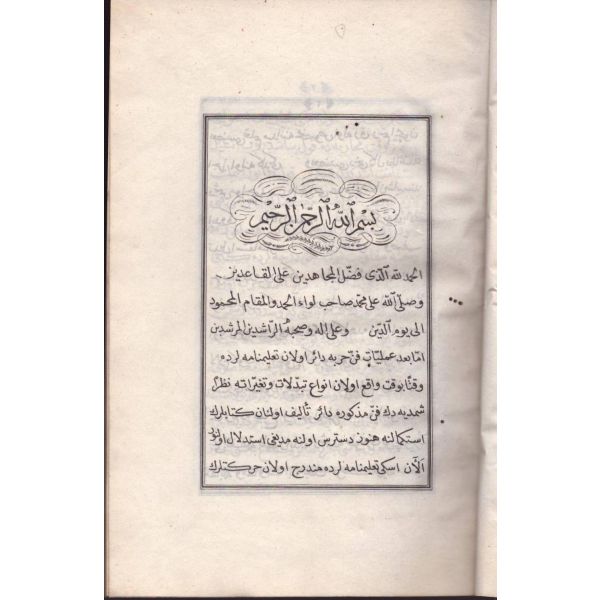 بسم الله الرحمن الرحيم
الحمد لله الذى فضل المجاهدين على القاعدين
وصلى الله على محمد صاحب لواء الحمد والمقام المحمود
الى يوم الدين وعلى اله وصحبه الراشدين المرشدين
اما بعد عمليات فن حربه دائر اولان تعليمنامه لرده
وقتا بوقت واقع اولان انواع تبدلات وتغيراته نظرا
شمديه دك فن مذكوره دائر تأليف اولنان كتابلرك
استكمالنه هنوز دسترس اولنه مديغى استدلال اولنوب
الآن اسكى تعليمنامه لرده مندرج اولان حركتلرك